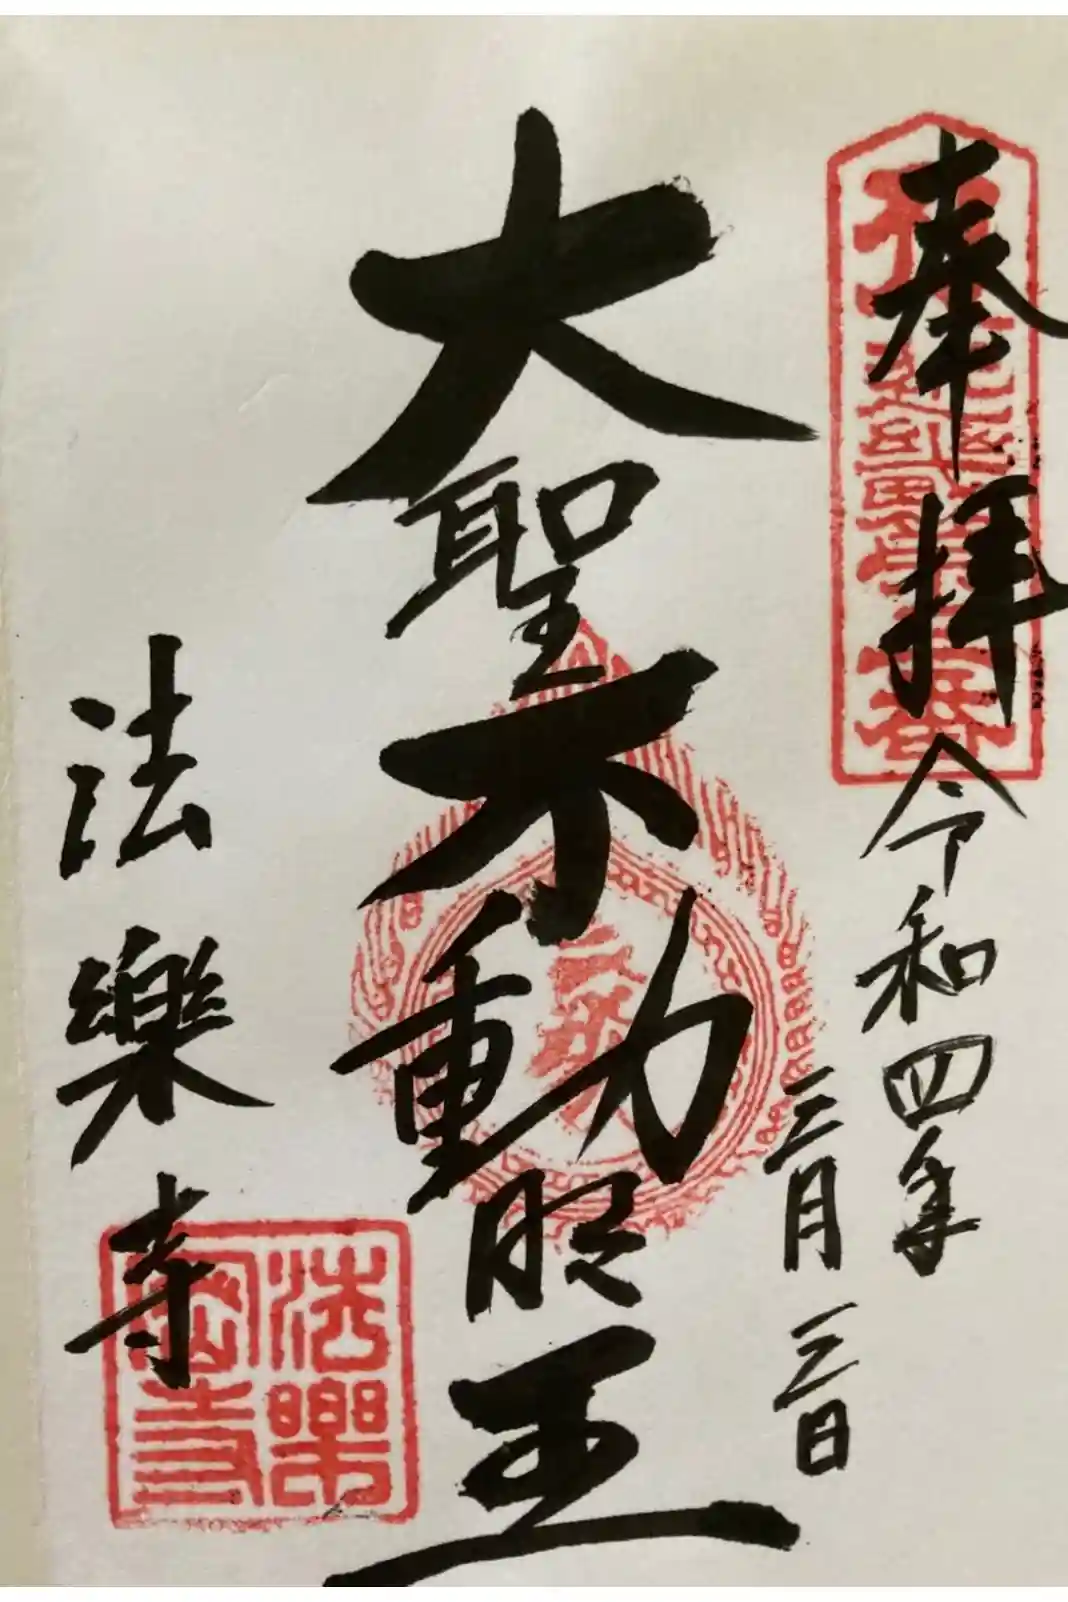 奉拝
令和四年
三月三日
大聖不動明王
法樂寺
法樂